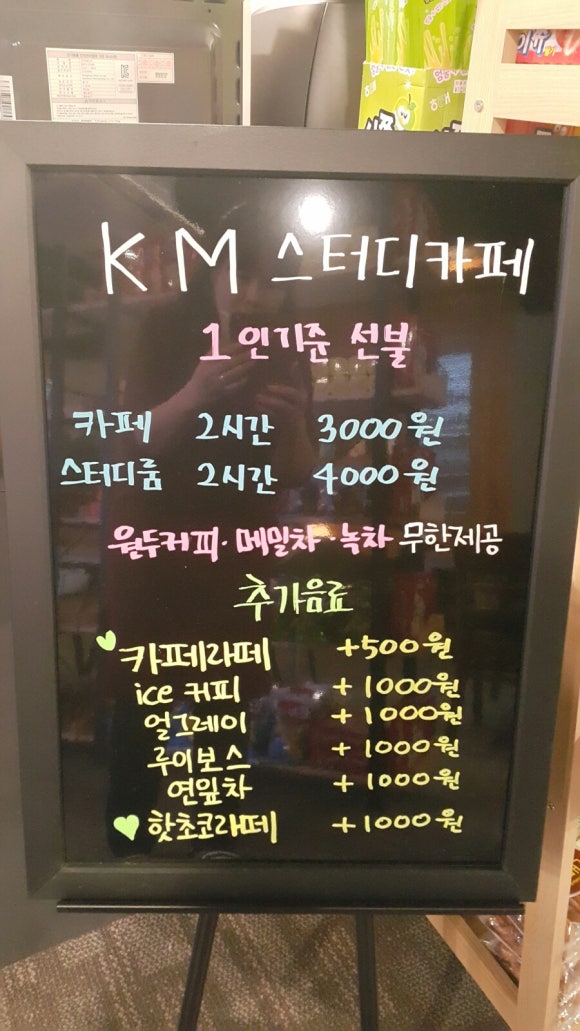 KM 스터디카페
1인기준 선불
카페 2시간 3000원
스터디룸 2시간 4000원
원두커피·메밀차·녹차 무한제공
추가음료
카페라떼 +500원
ice 커피 +1000원
얼그레이 +1000원
루이보스 +1000원
연잎차 +1000원
핫초코라떼 +1000원